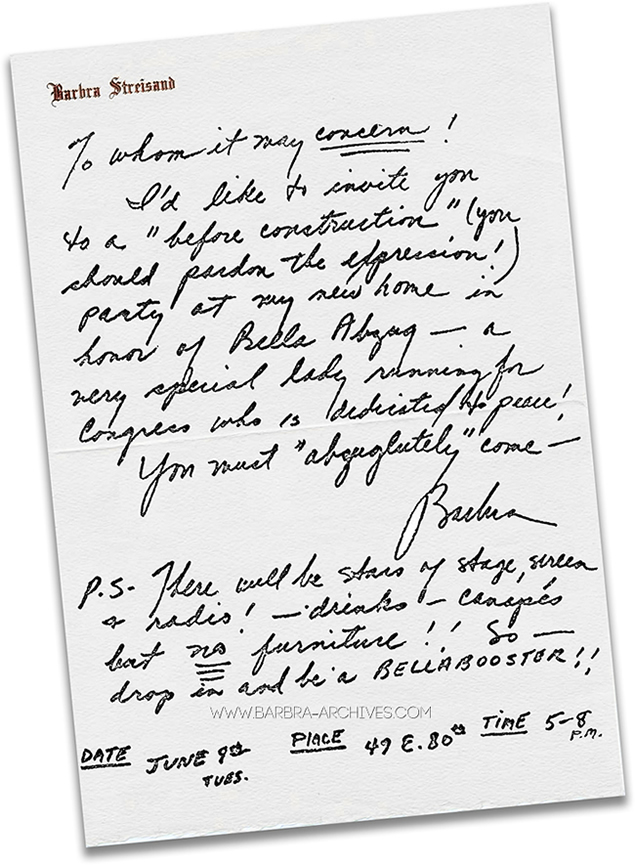 Barbra Streisand
To whom it may concern!
I'd like to invite you
to a "before construction" (you
should pardon the expression!)
party at my new home in
honor of Bella Abzug — a
very special lady running for
Congress who is dedicated to peace!
You must "abzuglutely" come —
Barbra
P.S. There will be stars of stage, screen
& radio! — drinks — canapés
but no furniture!! So —
drop in and be a BELLABOOSTER!!
WWW.BARBRA-ARCHIVES.COM
DATE JUNE 9th PLACE 49 E. 80th TIME 5-8
TUES. P.M.